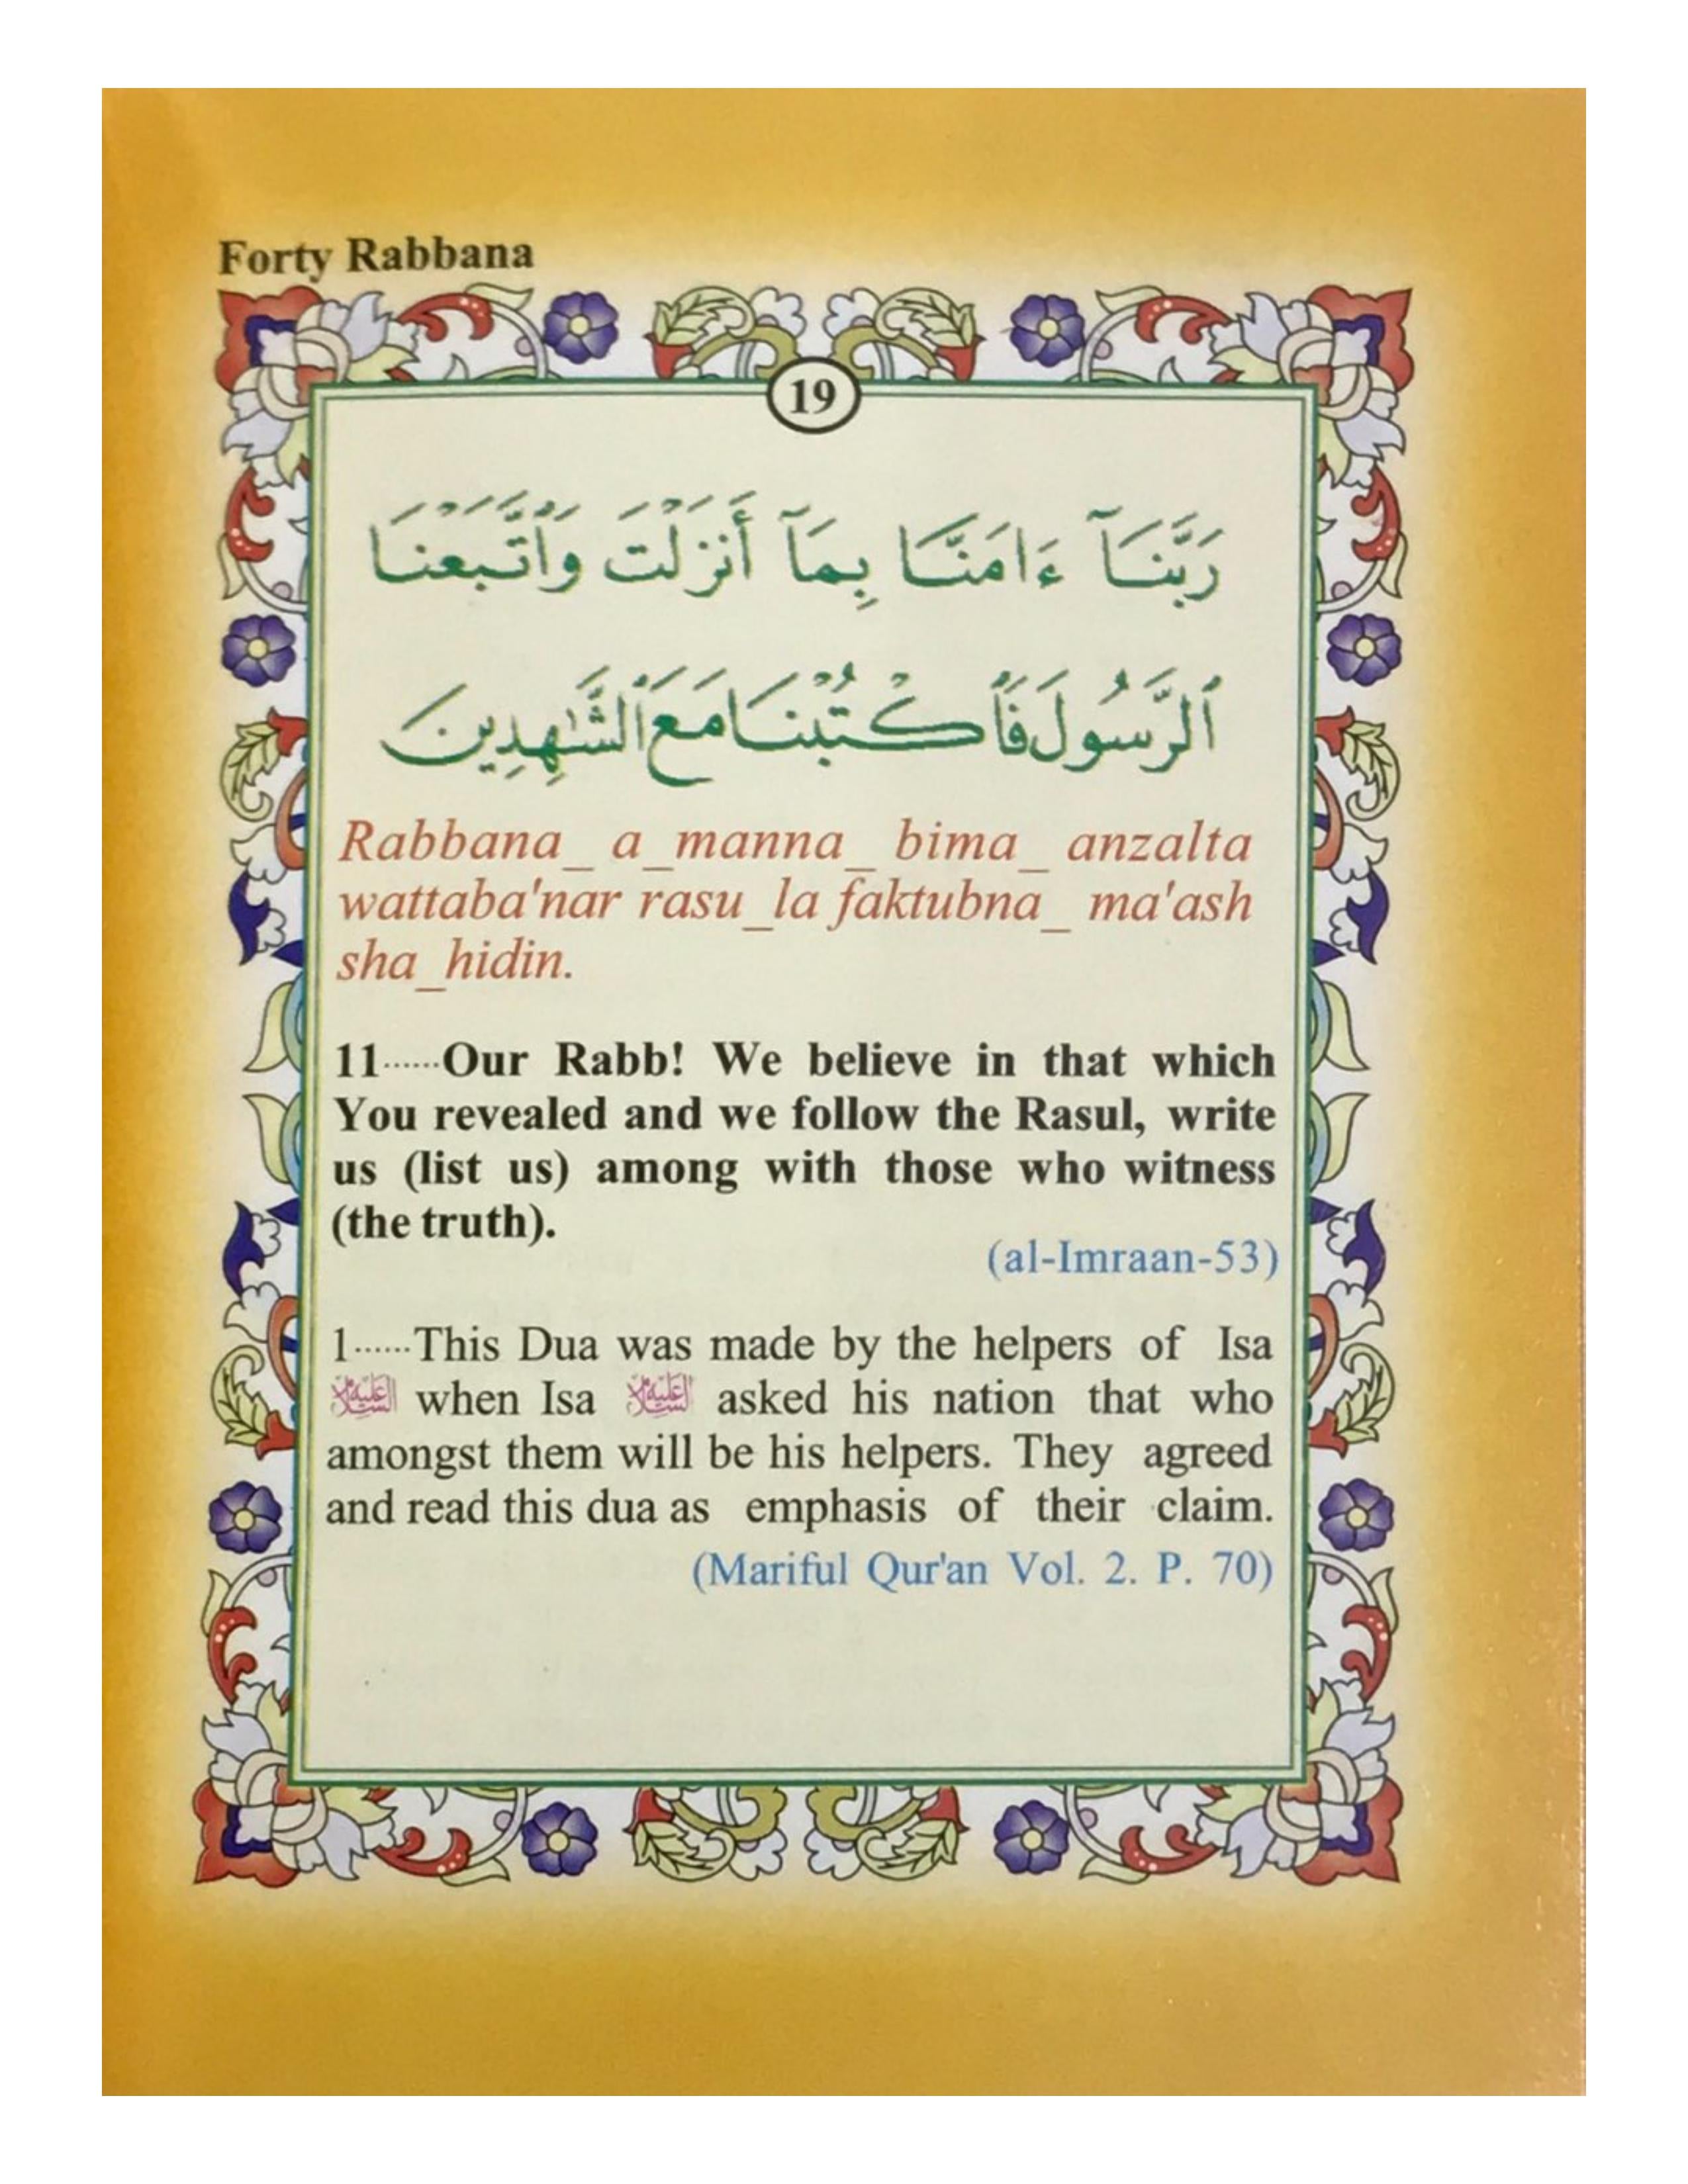 Forty Rabbana
19
رَبَّنَآ ءَامَنَّا بِمَآ أَنزَلْتَ وَٱتَّبَعْنَا
ٱلرَّسُولَ فَٱكْتُبْنَا مَعَ ٱلشَّٰهِدِينَ
Rabbana_ a_manna_ bima_ anzalta
wattaba'nar rasu_la faktubna_ ma'ash
sha_hidin.
11······Our Rabb! We believe in that which
You revealed and we follow the Rasul, write
us (list us) among with those who witness
(the truth).
(al-Imraan-53)
1······This Dua was made by the helpers of Isa
عليه السلام when Isa عليه السلام asked his nation that who
amongst them will be his helpers. They agreed
and read this dua as emphasis of their claim.
(Mariful Qur'an Vol. 2. P. 70)